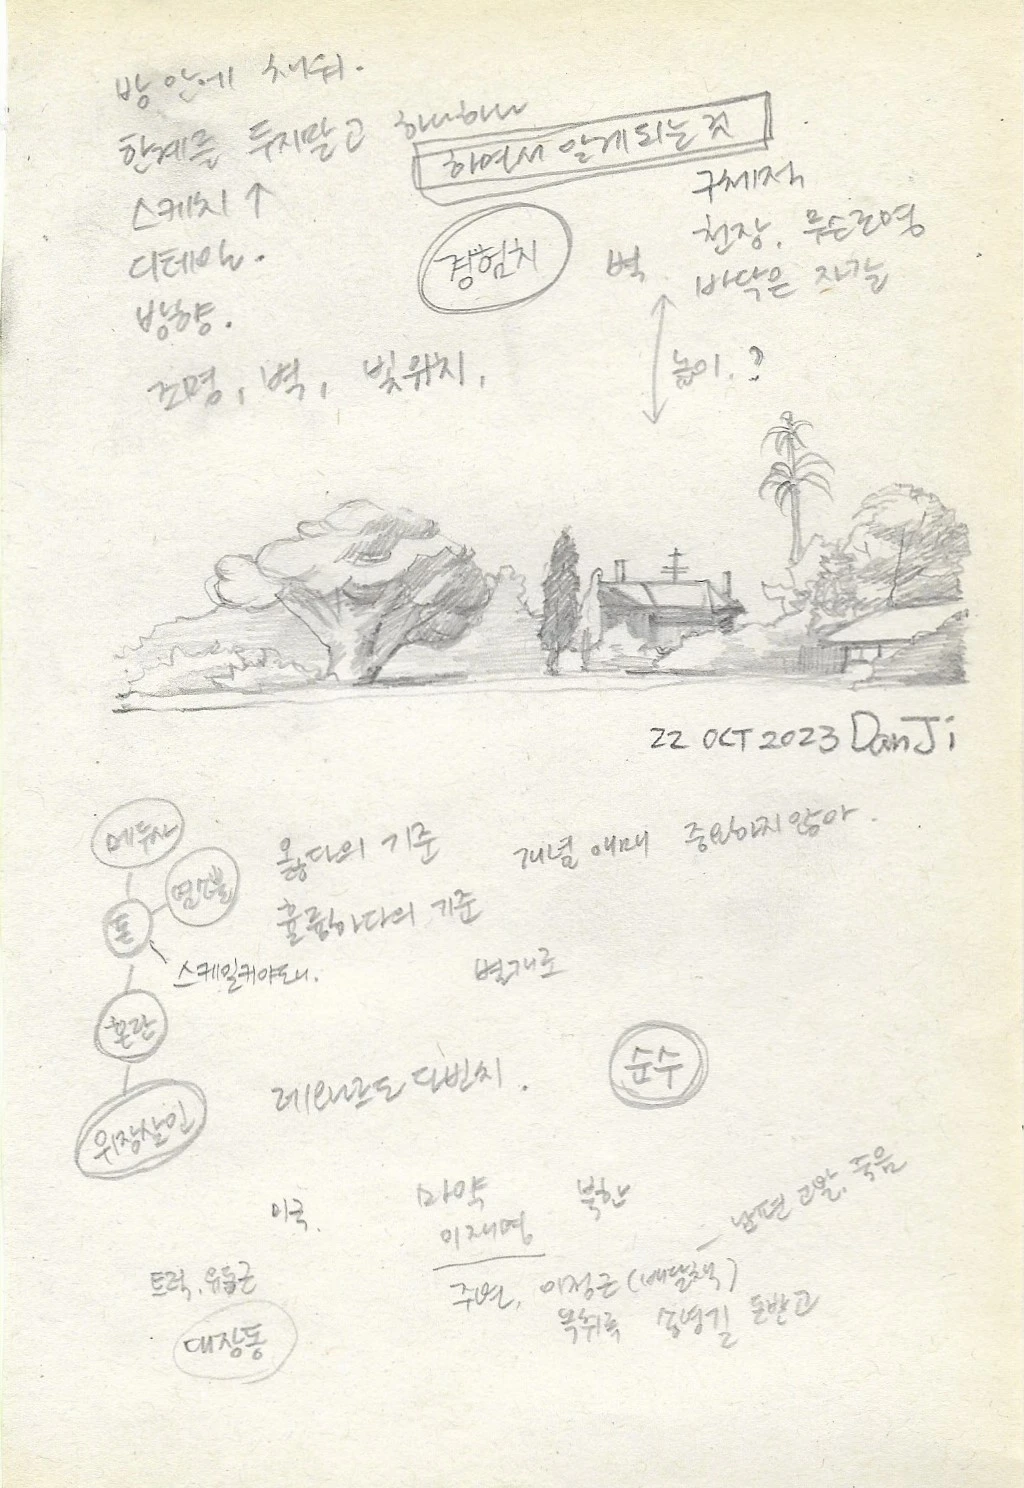 방 안에 채워.
한계를 두지말고 하나하나
하면서 알게되는 것
스케치 ↑
디테일.
방향.
조명, 벽, 빛위치,
경험치
벽
구체적
천장, 무슨조명
바닥은 자갈
높이.?
22 OCT 2023 DanJi
메두사
돈
스케일커야돼.
혼란
위장살인
옳다의 기준
훌륭하다의 기준
개념 애매 중요하지않아.
별개로
레오나르도 다빈치.
순수
미국.
마약
이재명
북한
주변, 이정근(배달책)
남편 고발, 죽음
녹취록 송영길 돈받고
트럭, 유동근
대장동